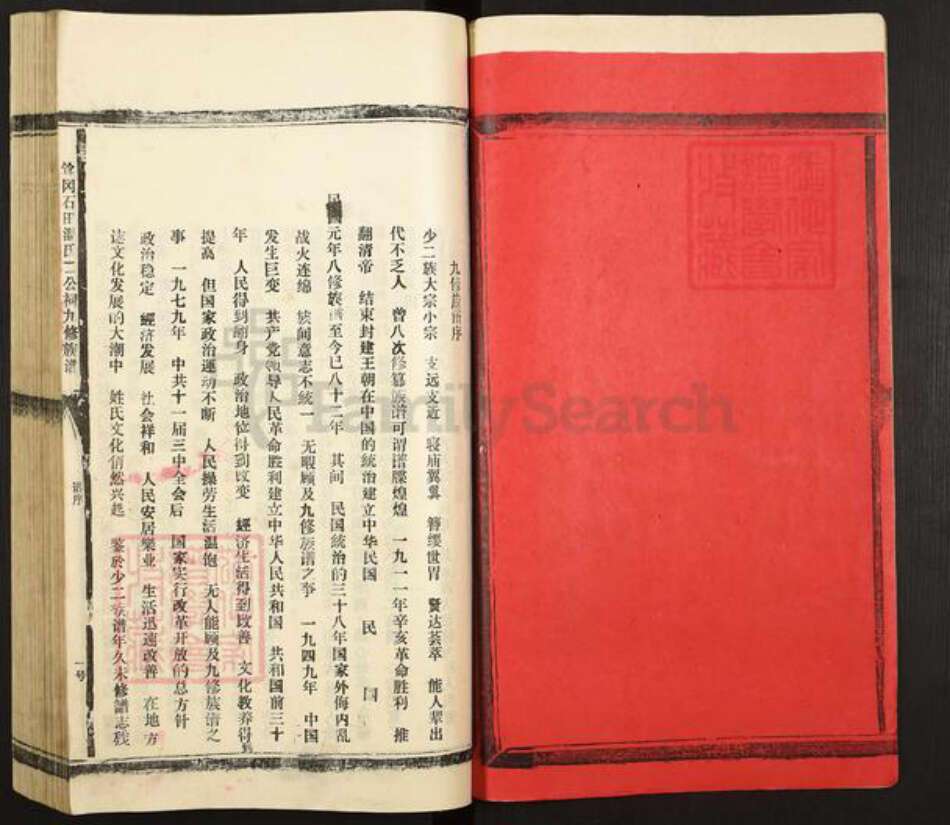 九修族谱序
少二族大宗小宗 支远支近 寝庙翼翼 簪缨世胄 贤达荟萃 能人辈出
代不乏人 曾八次修篡族谱可谓谱牒煌煌 一九一一年辛亥革命胜利 推
翻清帝 结束封建王朝在中国的统治建立中华民国 民 国
民国元年八修族谱至今已八十二年 其间 民国统治的三十八年国家外侮内乱
战火连绵 族间意志不统一 无暇顾及九修族谱之事 一九四九年 中国
发生巨变 共产党领导人民革命胜利建立中华人民共和国 共和国前三十
年 人民得到翻身 政治地位得到改变 經济生活得到改善 文化教养得到
提高 但国家政治运动不断 人民操劳生活温饱 无人能顾及九修族谱之
事 一九七九年 中共十一届三中全会后 国家实行改革开放的总方针
政治稳定 經济发展 社会祥和 人民安居樂业 生活迅速改善 在地方
志文化发展的大潮中 姓氏文化俏然兴起 鉴於少二族谱年久未修譜志残
冈石田温氏二公祠九修族谱
谱序
一号
FamilySearch